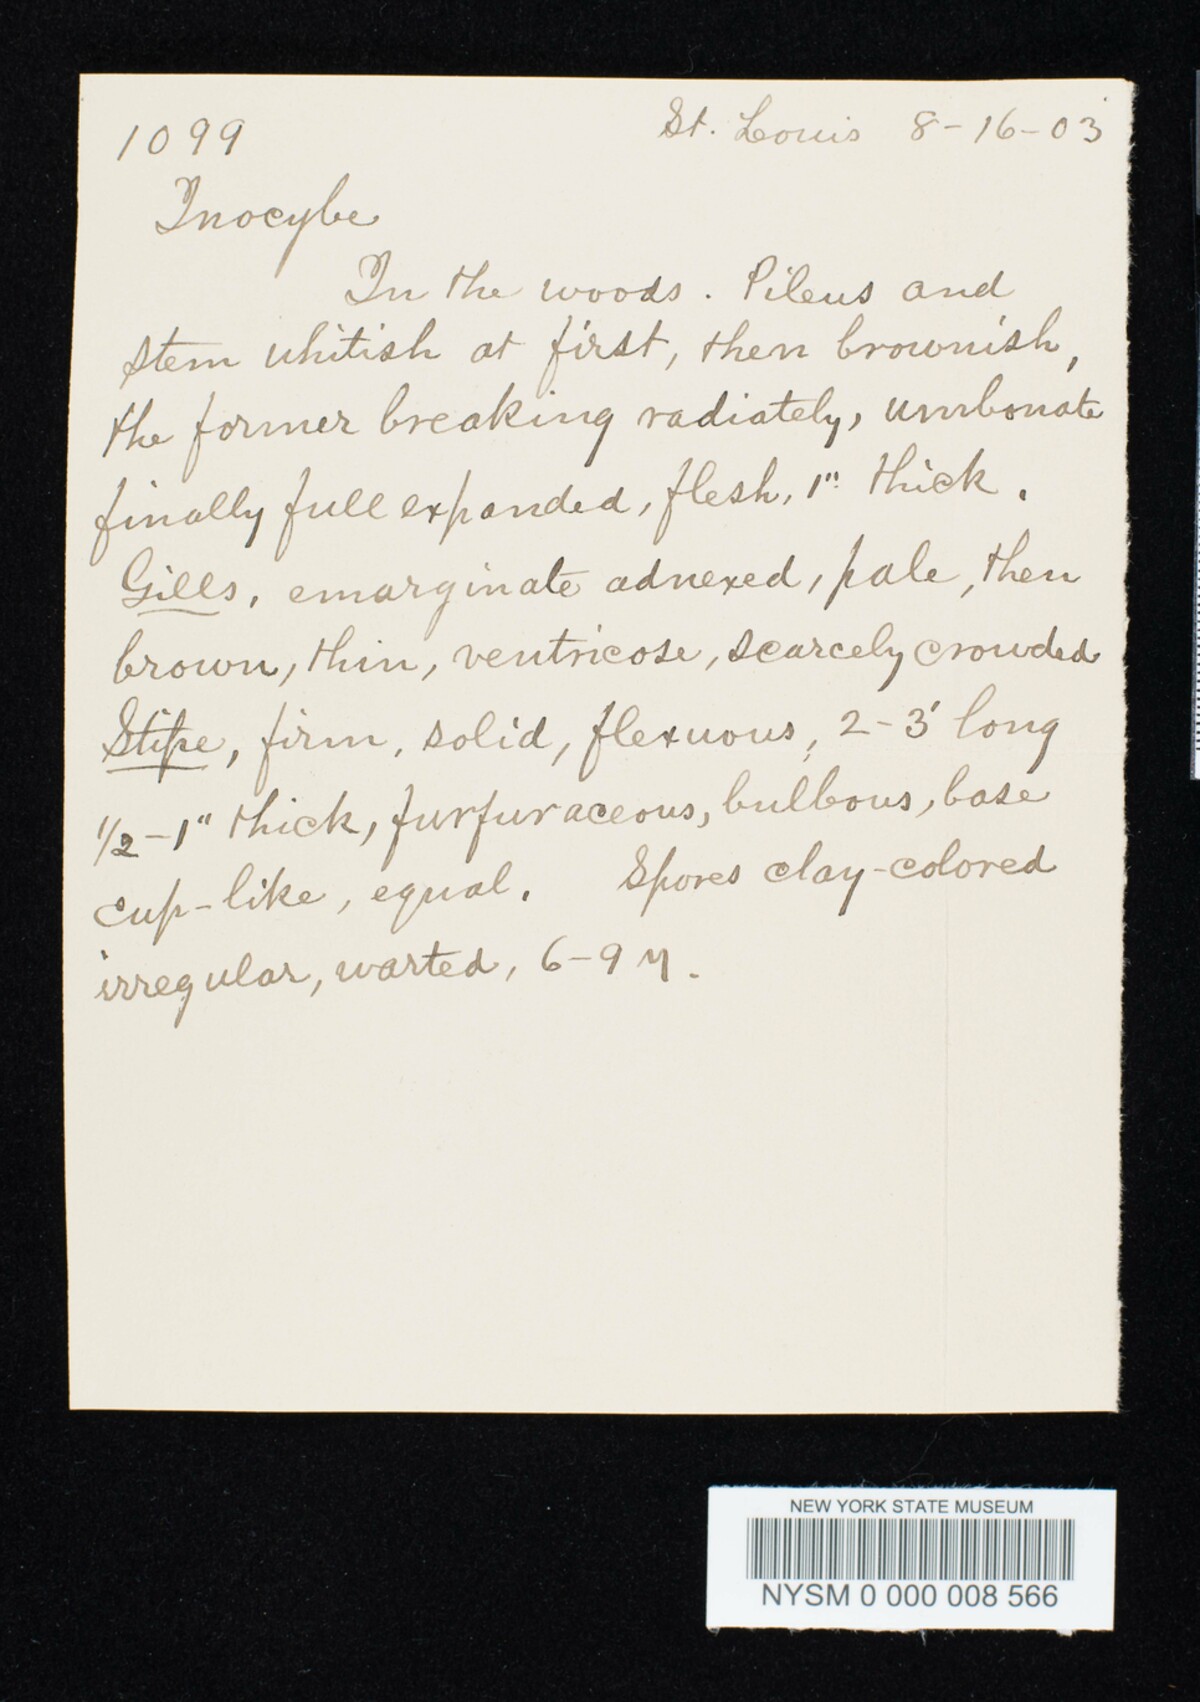 1099
St. Louis 8-16-03
Inocybe
In the woods. Pileus and
stem whitish at first, then brownish,
the former breaking radiately, umbonate
finally full expanded, flesh, 1''' thick.
Gills, emarginate adnexed, pale, then
brown, thin, ventricose, scarcely crowded
Stipe, firm, solid, flexuous, 2-3' long
1/2-1" thick, furfuraceous, bulbous, base
cup-like, equal. Spores clay-colored
irregular, warted, 6-9 μ.
NEW YORK STATE MUSEUM
NYSM 0 000 008 566